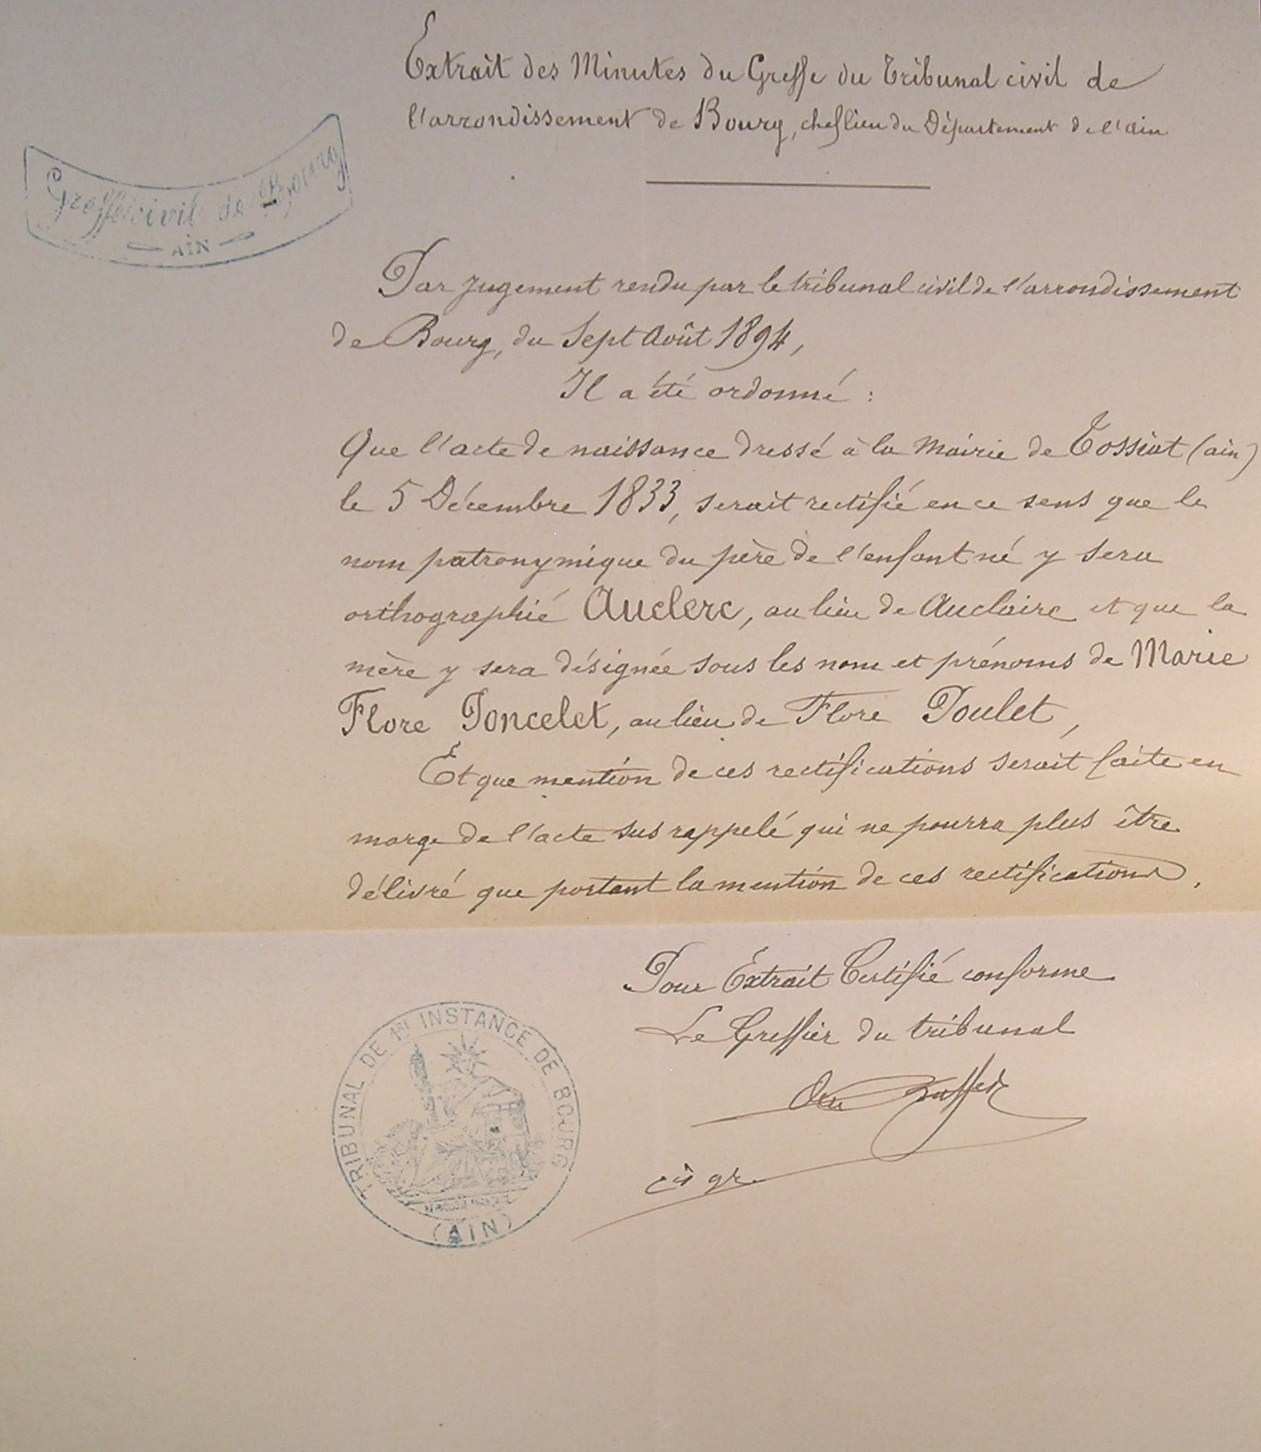 Extrait des Minutes du Greffe du Tribunal civil de
l'arrondissement de Bourg, chef lieu du Département de l'ain
Greffe civil de Bourg
AIN
Par jugement rendu par le tribunal civil de l'arrondissement
de Bourg, du Sept Août 1894,
Il a été ordonné :
Que l'acte de naissance dressé à la Mairie de Tossiat (ain)
le 5 Décembre 1833, serait rectifié en ce sens que le
nom patronymique du père de l'enfant né y sera
orthographié Auclerc, au lieu de Auclaire et que la
mère y sera désignée sous les nom et prénoms de Marie
Flore Poncelet, au lieu de Flore Poulet,
Et que mention de ces rectifications serait faite en
marge de l'acte sus rappelé qui ne pourra plus être
délivré que portant la mention de ces rectifications.
Pour Extrait Certifié conforme
Le Greffier du tribunal
cis gr.
TRIBUNAL DE 1RE INSTANCE DE BOURG
(AIN)